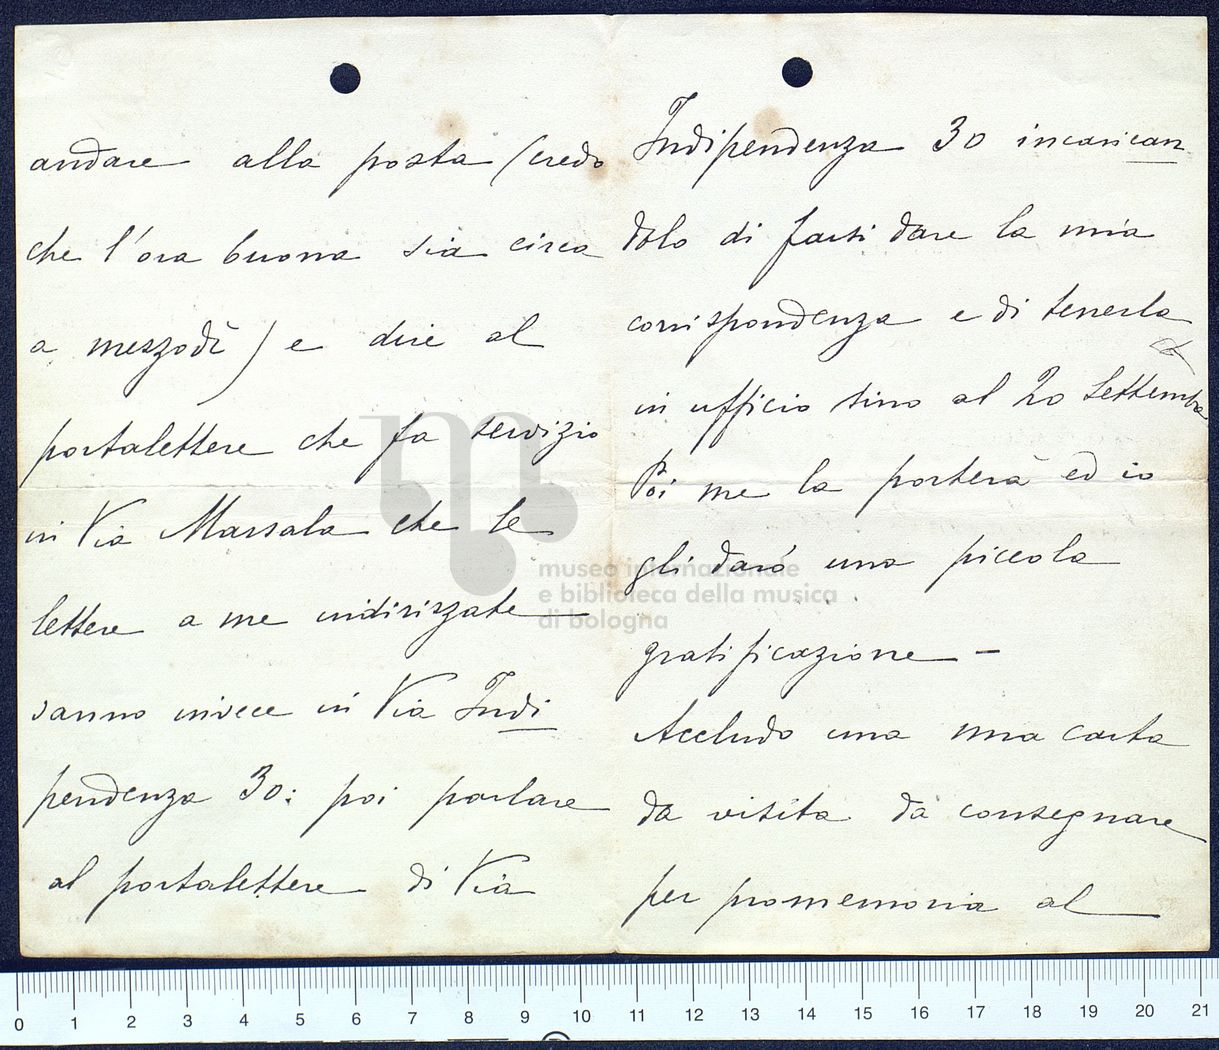 andare alla posta (credo
che l'ora buona sia circa
a mezzodì) e dire al
portalettere che fa servizio
in Via Marsala che le
lettere a me indirizzate
vanno invece in Via Indi
pendenza 30: poi parlare
al portalettere di Via
Indipendenza 30 incarican
dolo di farsi dare la mia
corrispondenza e di tenerla
in ufficio sino al 20 Settembre
Poi me la porterà ed io
gli darò una piccola
gratificazione –
Accludo una mia carta
da visita da consegnare
per promemoria al
museo internazionale
e biblioteca della musica
di bologna
0 1 2 3 4 5 6 7 8 9 10 11 12 13 14 15 16 17 18 19 20 21